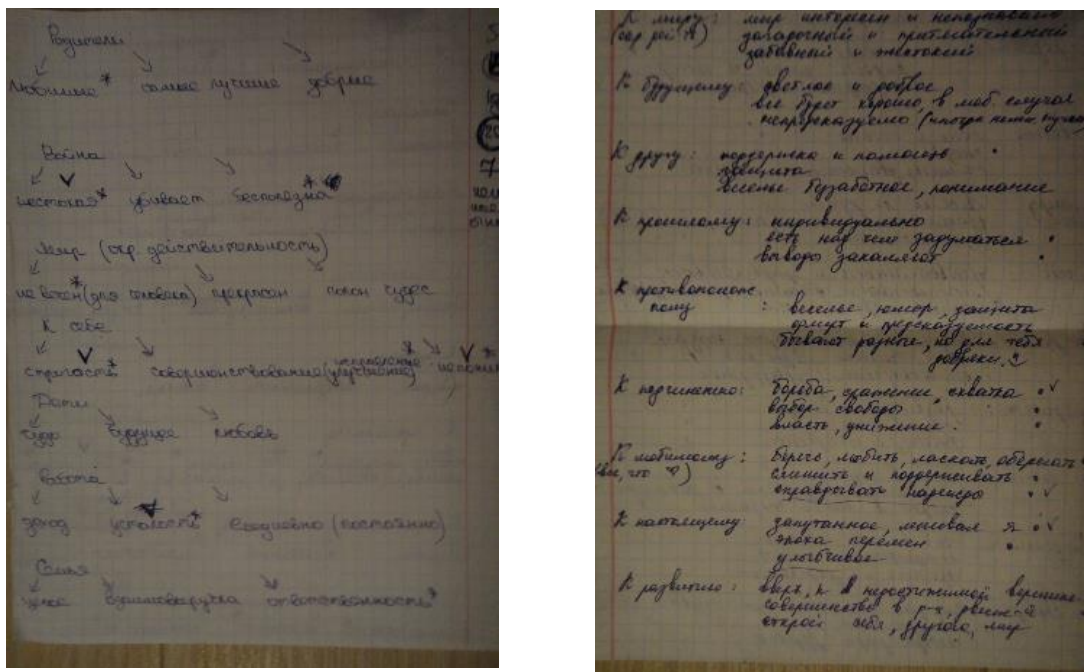 Родители
любимые* самые лучшие добрые
Война
жестокая* убивает бесполезна*
Мир (окр. действительность)
не вечен* (для человека) прекрасен полон чудес
К себе
строгость* совершенствование (улучшение)
Дети
чудо будущее любовь
Работа
доход усталость* Ежедневно (постоянно)
Семья
взаимовыручка ответственность*
К миру: мир интересен и непознаваем
загадочный и притягательный
забавный и жестокий
К будущему: светлое и доброе
все будет хорошо, в моб случая
непредсказуемо
К другу: поддержка и помощь
защита
веселье беззаботное, понимание
К прошлому: индивидуально
есть над чем задуматься
выводы закаляют
К противополож.
полу : веселье, юмор, защита
флирт и предсказуемость
бывают разные, но для тебя
добряки.
К подчинению: борьба, сражение, схватка
выбор свободы
власть, унижение.
К любимому: беречь, любить, ласкать, оберегать
слышать и поддерживать
оправдывать надежды
К настоящему: запутанное, я
эпоха перемен
улыбчивое
К развитию: вверх, к недостижимой вершине
совершенство в
открой себя, другого, мир